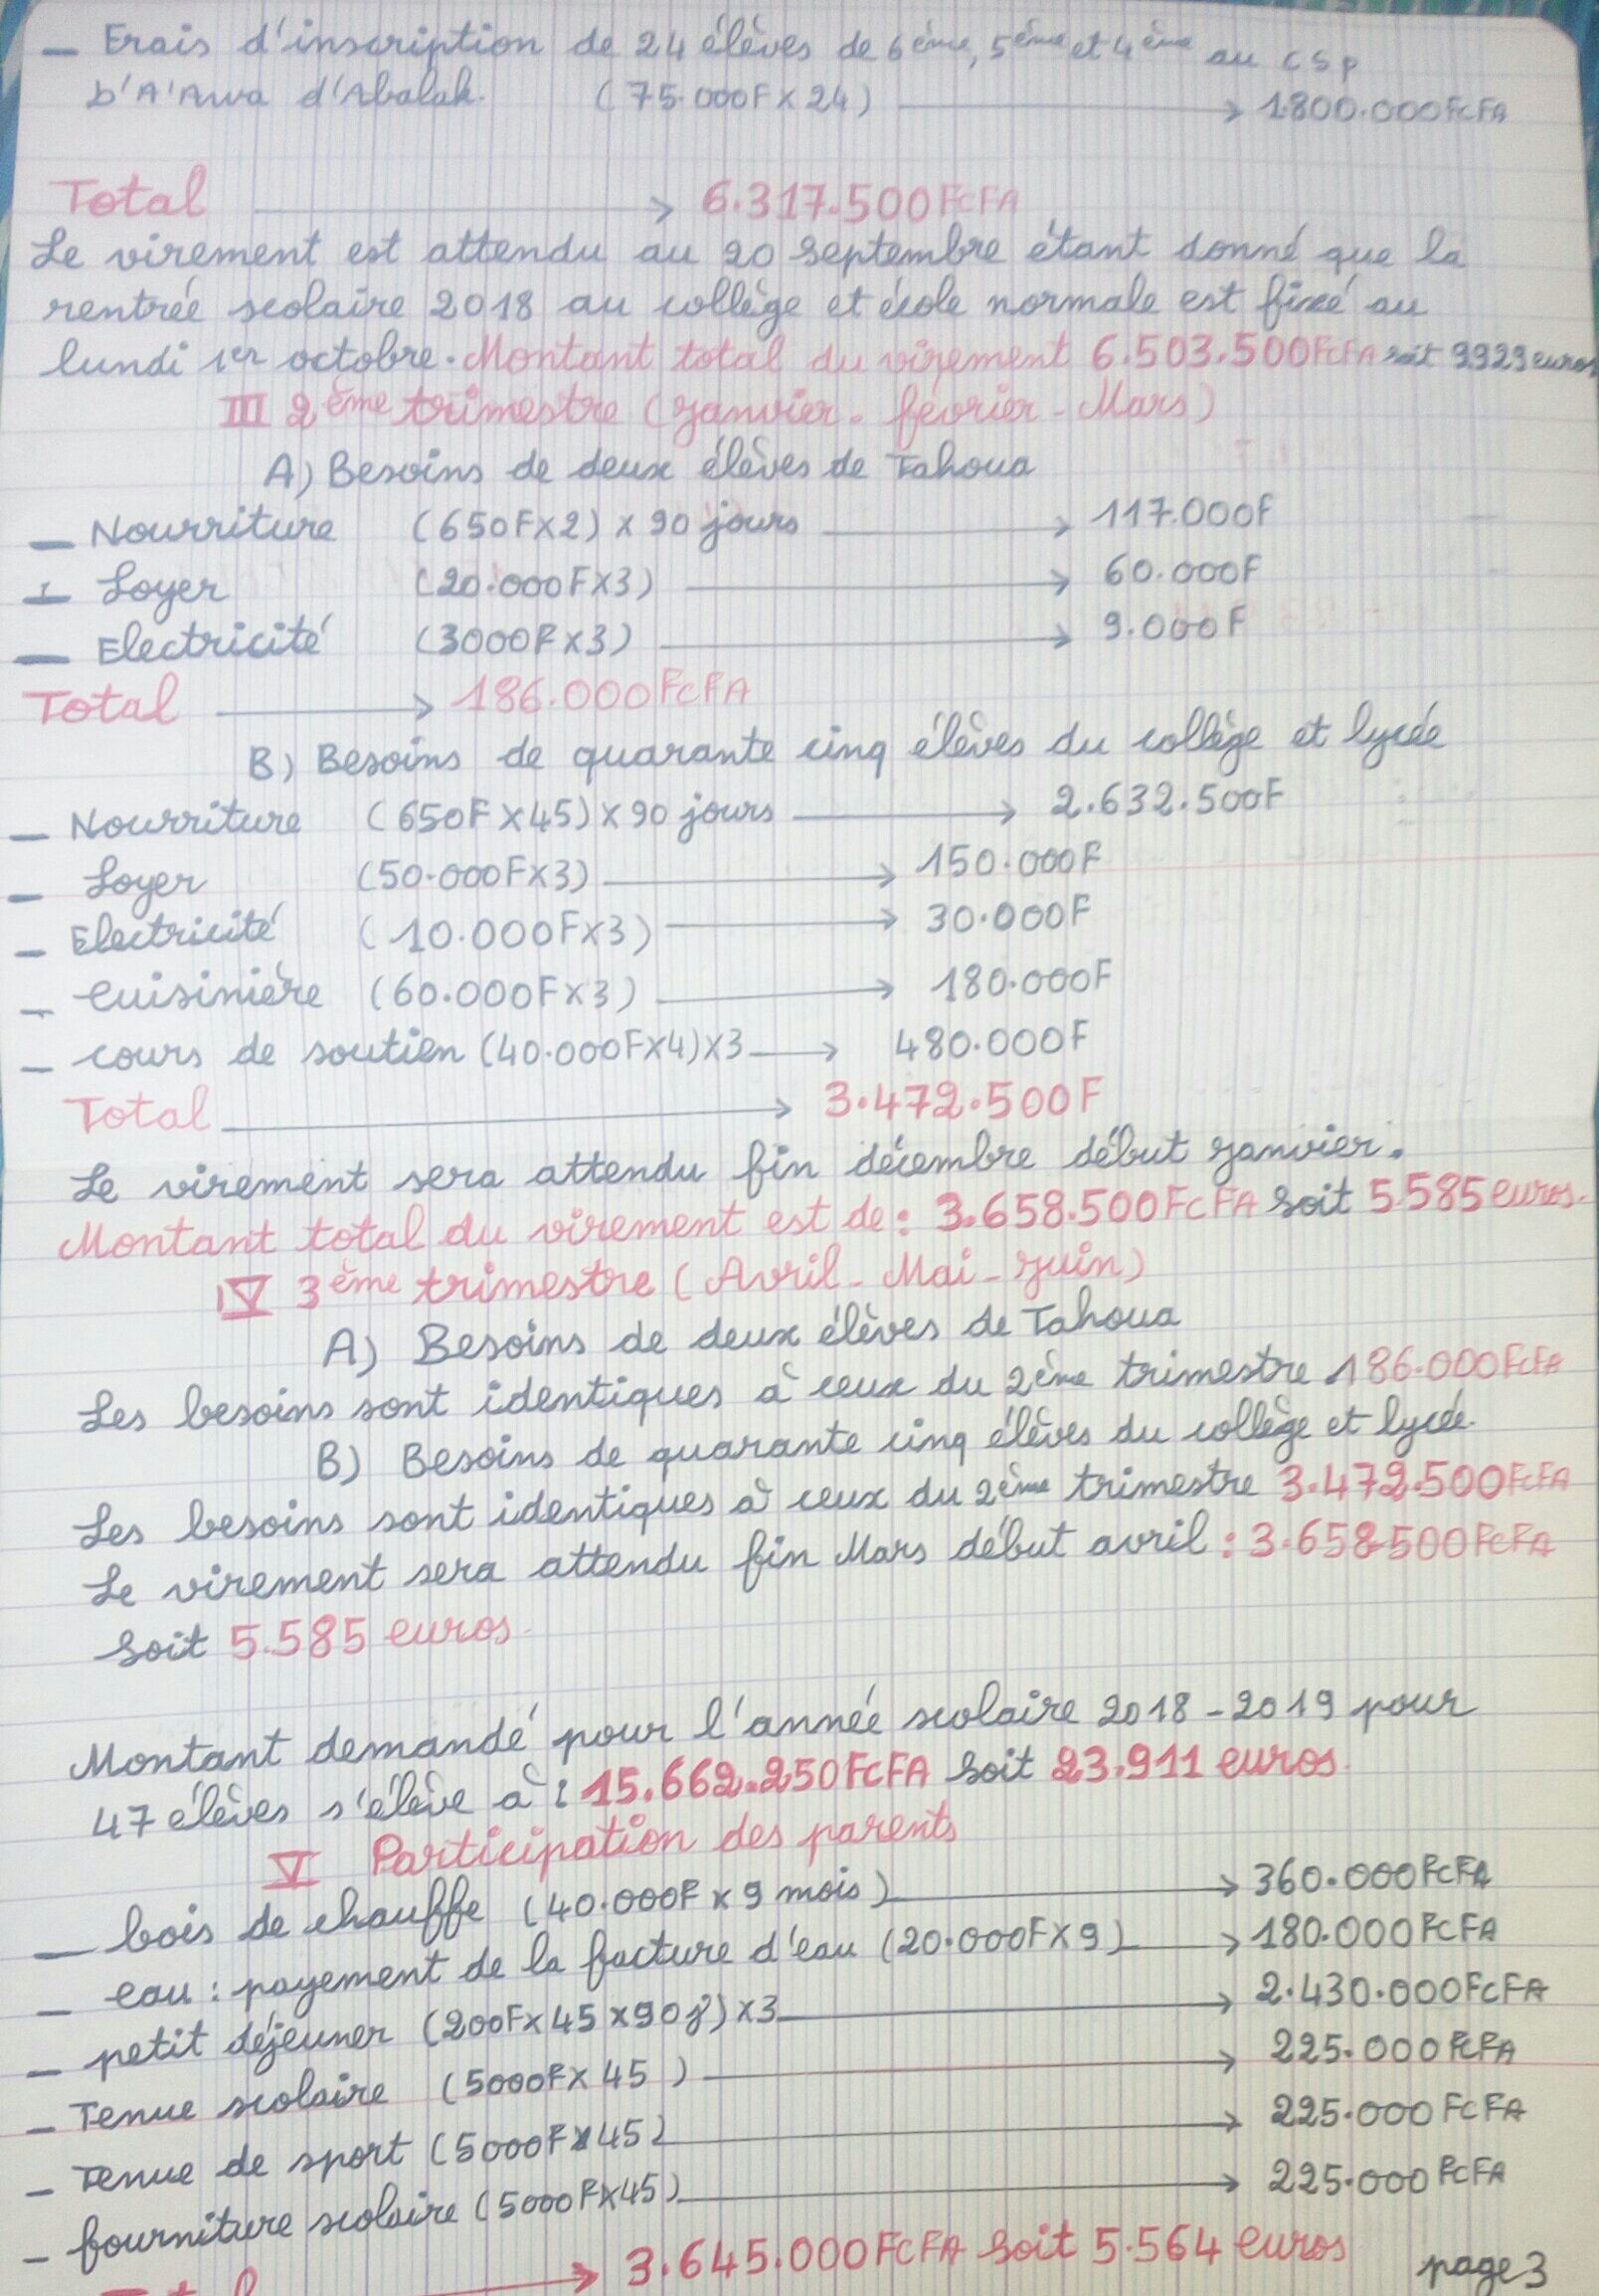 – Frais d'inscription de 24 élèves de 6ème, 5ème et 4ème au CSP
D'A'Awa d'Abalak. (75.000F X 24) → 1.800.000FCFA
Total → 6.317.500FCFA
Le virement est attendu au 20 septembre étant donné que la
rentrée scolaire 2018 au collège et école normale est fixé au
lundi 1er octobre. Montant total du virement 6.503.500FCFA soit 9929 euros
III 2ème trimestre (Janvier - février - Mars)
A) Besoins de deux élèves de Tahoua
– Nourriture (650F X 2) X 90 jours → 117.000F
– Loyer (20.000F X 3) → 60.000F
– Electricité (3000F X 3) → 9.000F
Total → 186.000FCFA
B) Besoins de quarante cinq élèves du collège et lycée
– Nourriture (650F X 45) X 90 jours → 2.632.500F
– Loyer (50.000F X 3) → 150.000F
– Electricité (10.000F X 3) → 30.000F
– Cuisinière (60.000F X 3) → 180.000F
– cours de soutien (40.000F X 4) X 3 → 480.000F
Total → 3.472.500F
Le virement sera attendu fin décembre début janvier.
Montant total du virement est de : 3.658.500FCFA soit 5.585 euros.
IV 3ème trimestre (Avril - Mai - Juin)
A) Besoins de deux élèves de Tahoua
Les besoins sont identiques à ceux du 2ème trimestre 186.000FCFA
B) Besoins de quarante cinq élèves du collège et lycée.
Les besoins sont identiques à ceux du 2ème trimestre 3.472.500FCFA
Le virement sera attendu fin Mars début avril : 3.658.500FCFA
Soit 5.585 euros.
Montant demandé pour l'année scolaire 2018 - 2019 pour
47 élèves s'élève à : 15.662.250FCFA Soit 23.911 euros.
V Participation des parents
– bois de chauffe (40.000F X 9 mois) → 360.000FCFA
– eau : payement de la facture d'eau (20.000F X 9) → 180.000FCFA
– petit déjeuner (200F X 45 X 90 j) X 3 → 2.430.000FCFA
– Tenue scolaire (5000F X 45) → 225.000FCFA
– Tenue de sport (5000F X 45) → 225.000FCFA
– fourniture scolaire (5000F X 45) → 225.000FCFA
Total → 3.645.000FCFA Soit 5.564 euros
page 3